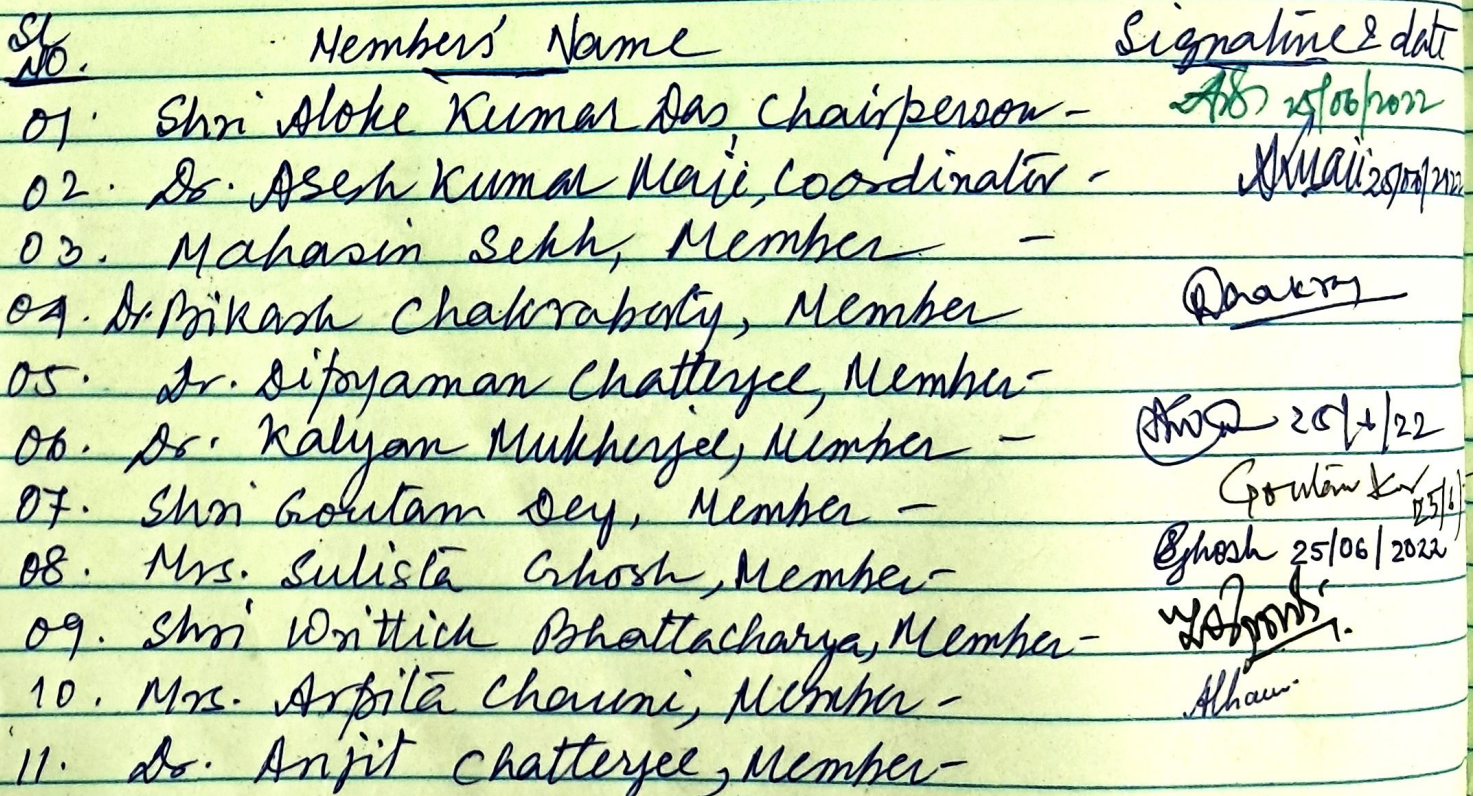 Sl. No. Members' Name Signature & date
01. Shri Aloke Kumar Das, Chairperson - 25/06/2022
02. Dr. Asesh Kumar Maji, Coordinator - AKMaji 25/06/2022
03. Mahasin Sekh, Member -
04. Dr. Bikash Chakraborty, Member
05. Dr. Dipyaman Chatterjee, Member -
06. Dr. Kalyan Mukherjee, Member - 22
07. Shri Goutam Dey, Member - Goutam
08. Mrs. Sulista Ghosh, Member - SGhosh 25/06/2022
09. Shri Writtick Bhattacharya, Member -
10. Mrs. Arpita Chauni, Member -
11. Dr. Arijit Chatterjee, Member -